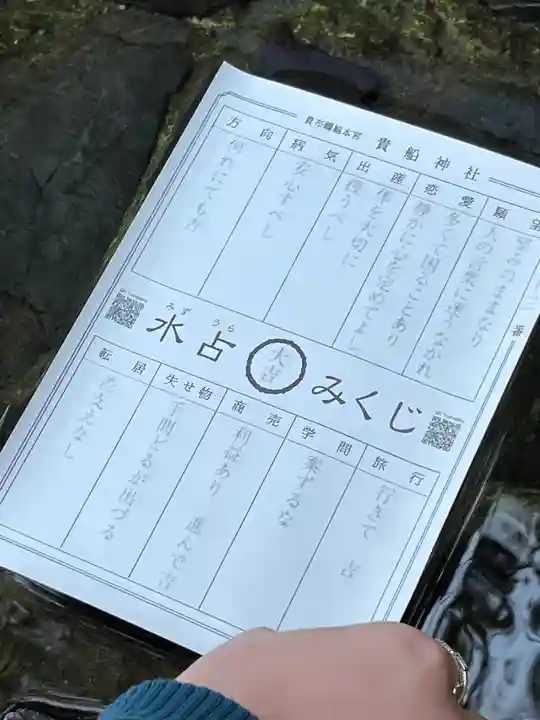 貴布禰総本宮 貴船神社
願望
望みのままなり
人の言葉に乗つながれ
恋愛
多くて困ることあり
静かに心を定めてよし
出産
体を大切に
擁うべし
病気
安心すべし
方向
何れにても吉
番
みず うら
水占 みくじ
大吉
旅行
行きて 吉
学問
案ずるな
商売
利益あり 進んで吉
失せ物
手間どるが出づる
転居
差支えなし